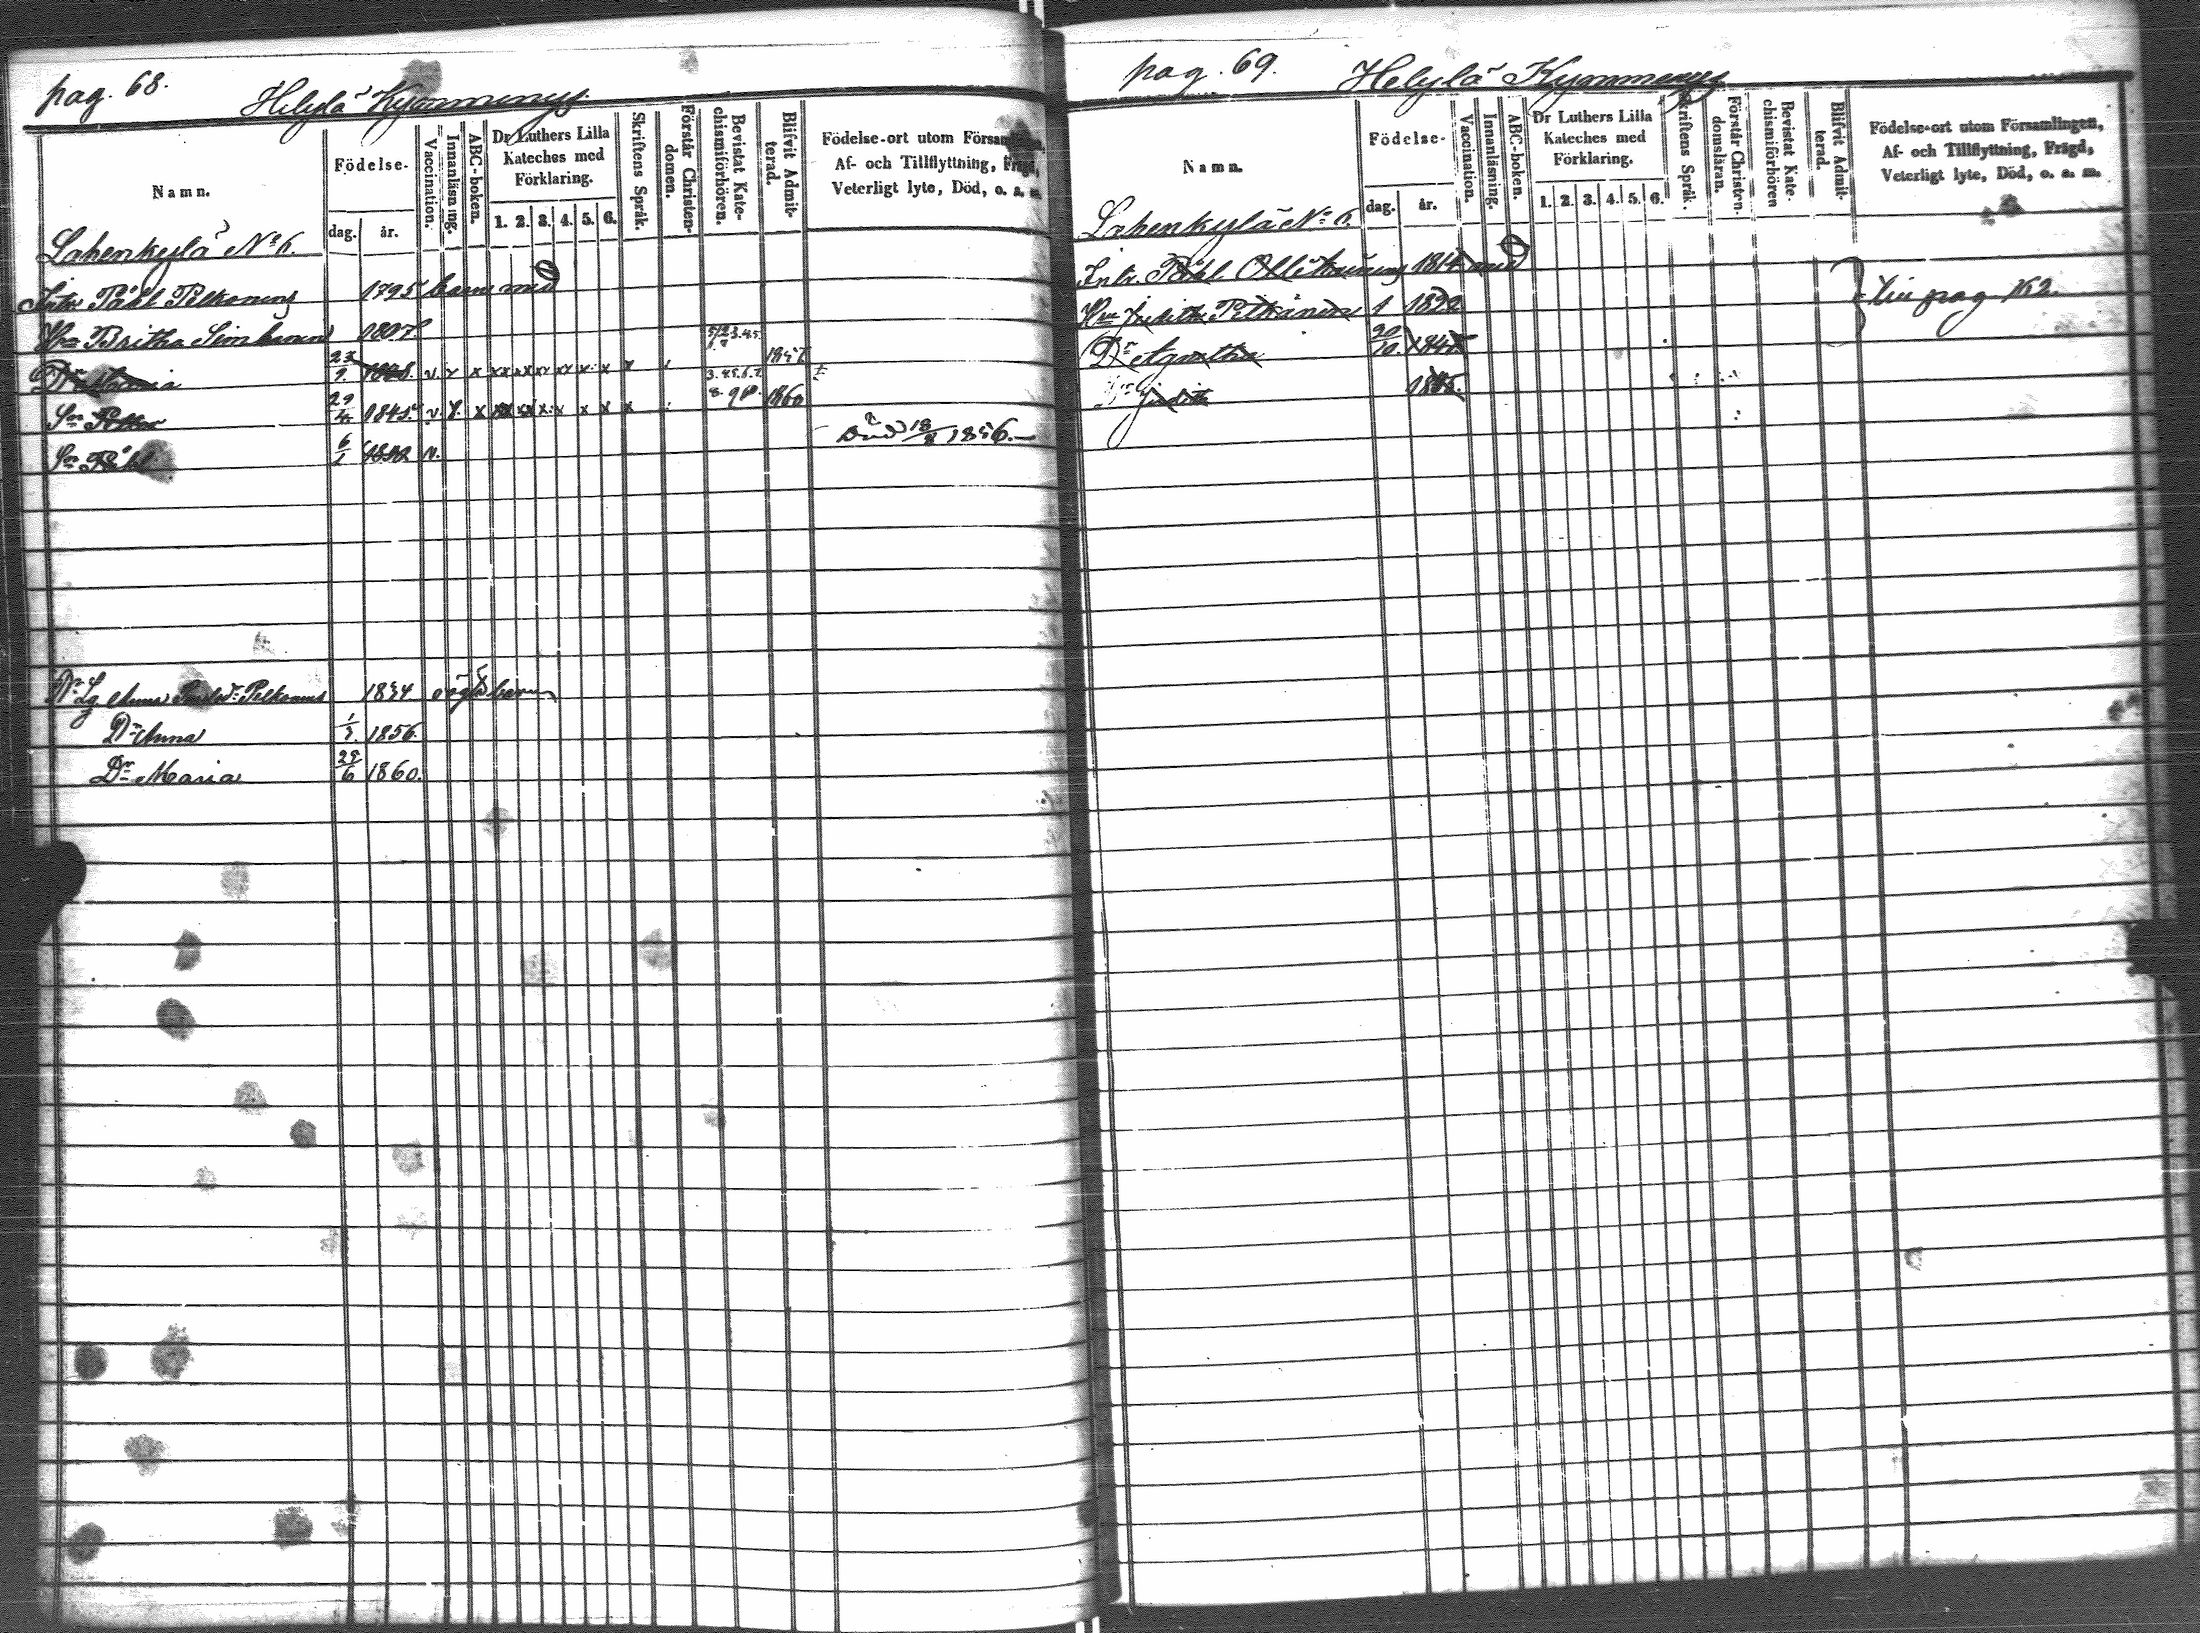 pag. 68.
Helylä Kyommenys.
Namn.
Födelse-
dag. år.
Vaccination.
Innanläsning.
ABC-boken.
Dr Luthers Lilla Kateches med Förklaring.
1. 2. 3. 4. 5. 6.
Skriftens Språk.
Förstår Christendomen.
Bevistat Katechismiförhören.
Blifvit Admitterad.
Födelse-ort utom Församlingen,
Af- och Tillflyttning, Frägd,
Veterligt lyte, Död, o. s. m.
Lahenkylä No 6.
Inh. Påhl Pelkonens 1795 barn med
Hu Britha Simbanen 1807
Dr Maria 23/9 v. x x x x x x x x x 1857
Sn Petter 29/4 1845 v. x x x x x x x x x 3.4.5.6.7. 8. 1860
Sn Påhl 6/1 v. död 18/8 1856.
Lg. Anna Pelkonens 1834 barn
Dr Anna 1856.
Dr Maria 29/6 1860.
pag. 69.
Helylä Kyommenys
Namn.
Födelse-
dag. år.
Vaccination.
Innanläsning.
ABC-boken.
Dr Luthers Lilla Kateches med Förklaring.
1. 2. 3. 4. 5. 6.
Skriftens Språk.
Förstår Christendomsläran.
Bevistat Katechismiförhören
Blifvit Admitterad.
Födelse-ort utom Församlingen,
Af- och Tillflyttning, Frägd,
Veterligt lyte, Död, o. s. m.
Lahenkylä No 6.
Inh. Påhl Ollikainens 1814 med
Hu Judith Pelkonen
Dr Agatha 20/10
Dr Judith
pag. 162.